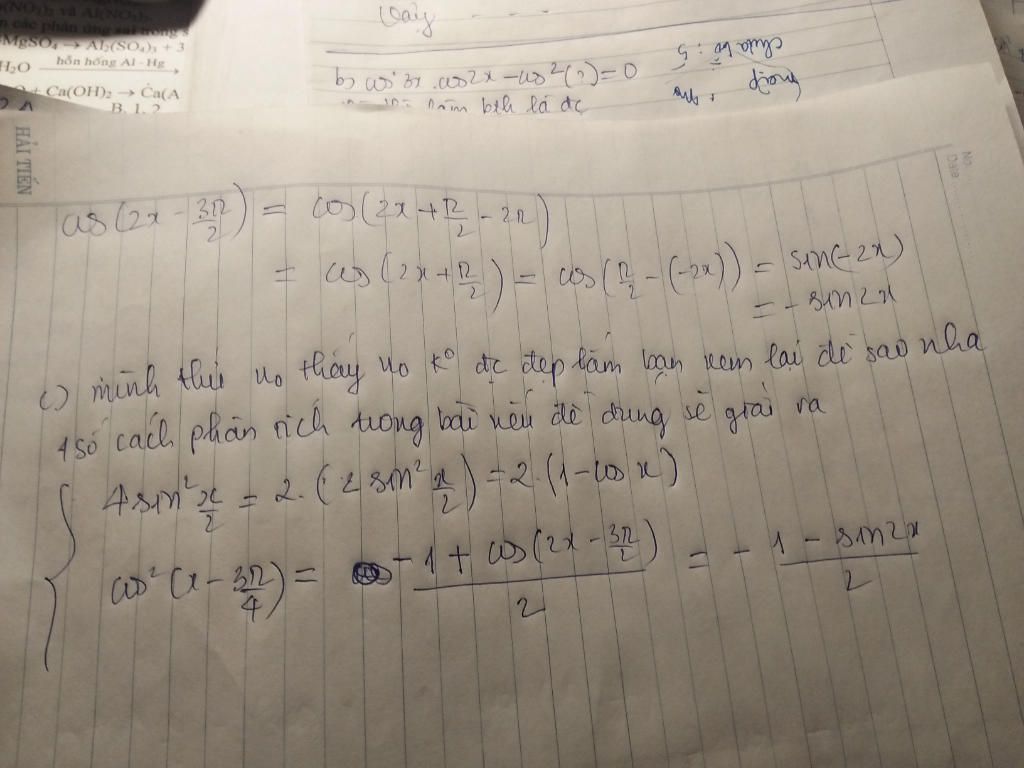 (NO₃)₂ và Al(NO₃)₃.
n các phản ứng sau trong s
MgSO₄ → Al₂(SO₄)₃ + 3
H₂O hỗn hống Al - Hg →
+ Ca(OH)₂ → Ca(A
B. 1, 2
Vậy - - - -
b) cos²3x.cos2x - cos²(?) = 0
HẢI TIẾN
No.
Date
cos(2x - 3π/2) = cos(2x + π/2 - 2π)
= cos(2x + π/2) = cos(π/2 - (-2x)) = sin(-2x)
= - sin2x
c) mình thử no thấy no k° đc đẹp lắm bạn xem lại đề sao nha
1 số cách phân tích trong bài nếu đề đúng sẽ giải ra
4sin² x/2 = 2.(2 sin² x/2) = 2.(1 - cos x)
cos²(x - 3π/4) = - 1 + cos(2x - 3π/2) / 2 = - 1 - sin2x / 2